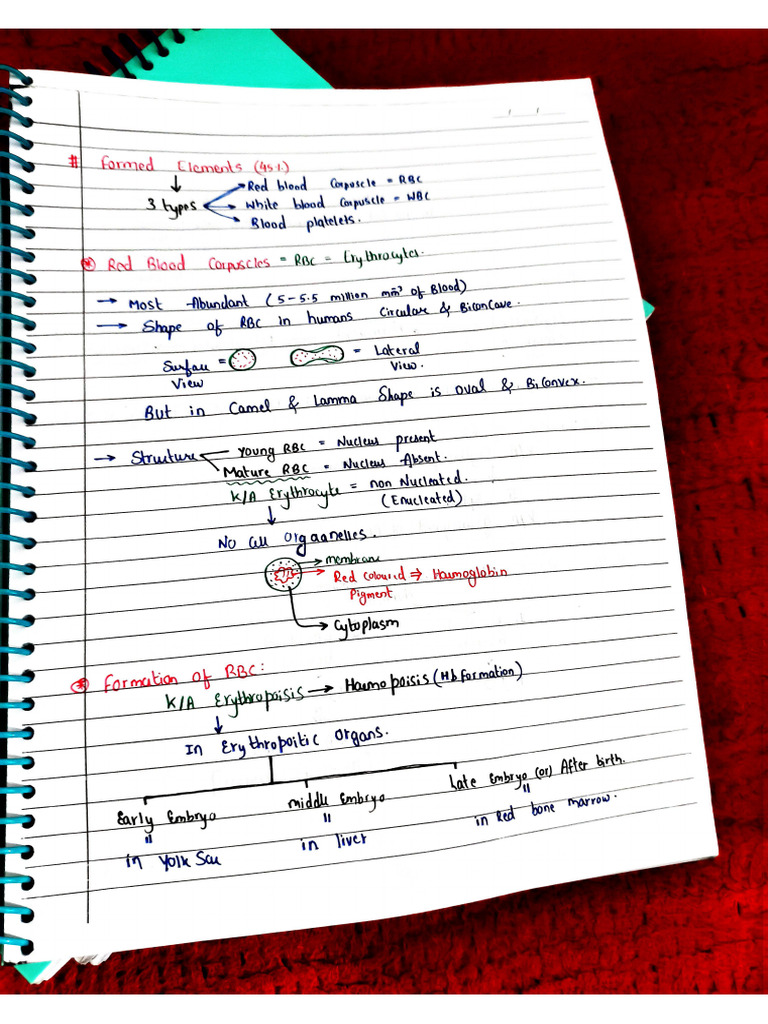 # Formed Elements (45%)
3 types
Red blood Corpuscle = RBC
White blood Corpuscle = WBC
Blood platelets.
* Red Blood Corpuscles = RBC = Erythrocytes.
→ Most Abundant (5-5.5 million mm³ of Blood)
→ Shape of RBC in humans Circular & Biconcave.
Surface View =
= Lateral View.
But in Camel & Lamma Shape is oval & Biconvex.
→ Structure
Young RBC = Nucleus present
Mature RBC = Nucleus Absent.
K/A Erythrocyte = non Nucleated.
(Enucleated)
↓
No Cell Orgaanelles.
→ membrane
→ Red Coloured ⇒ Haemoglobin
Pigment
→ Cytoplasm
* Formation of RBC:
K/A Erythropoisis → Haemopoisis (Hb formation)
↓
In Erythropoitic Organs.
Early Embryo
"
in Yolk Sac
middle Embryo
"
in liver
Late Embryo (or) After birth.
"
in Red bone marrow.